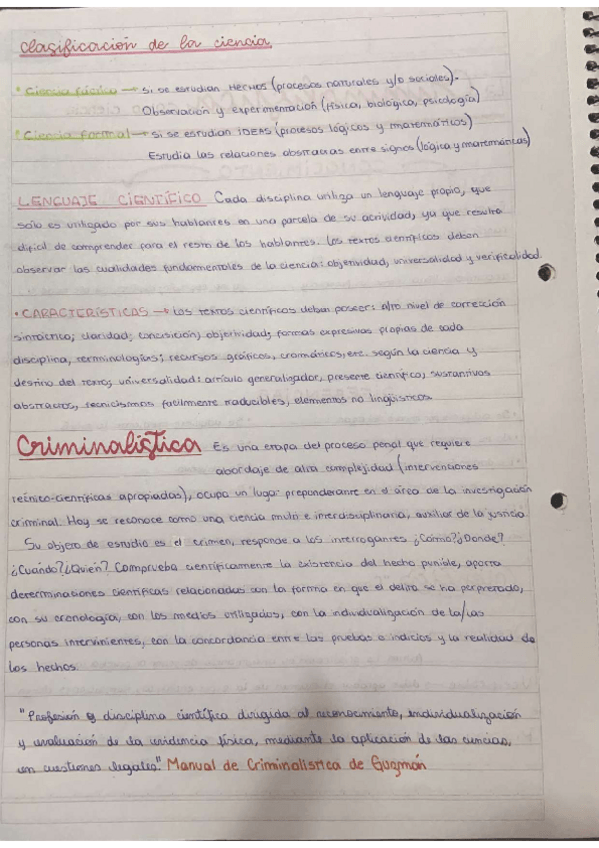 clasificación de la ciencia
• Ciencia fáctica → si se estudian HECHOS (procesos naturales y/o sociales).
Observación y experimentación (física, biología, psicología)
• Ciencia formal → si se estudian IDEAS (procesos lógicos y matemáticos)
Estudia las relaciones abstractas entre signos (lógica y matemáticas)
LENGUAJE CIENTÍFICO Cada disciplina utiliza un lenguaje propio, que
sólo es utilizado por sus hablantes en una parcela de su actividad, ya que resulta
dificil de comprender para el resto de los hablantes. Los textos científicos deben
observar las cualidades fundamentales de la ciencia: objetividad, universalidad y verificalidad.
• CARACTERÍSTICAS → Los textos científicos deben poseer: alto nivel de corrección
sintáctica; claridad; concisición; objetividad; formas expresivas propias de cada
disciplina, terminologías; recursos gráficos, cromáticos, etc. según la ciencia y
destino del texto; universalidad: artículo generalizador, presente científico, sustantivos
abstractos, tecnicismos facilmente traducibles, elementos no lingüísticos
Criminalística Es una etapa del proceso penal que requiere
abordaje de alta complejidad (intervenciones
técnico-científicas apropiadas), ocupa un lugar preponderante en el área de la investigación
criminal. Hoy se reconoce como una ciencia multi e interdisciplinaria, auxiliar de la justicia
Su objeto de estudio es el crimen, responde a los interrogantes ¿Cómo? ¿Donde?
¿Cuándo? ¿Quien? Comprueba científicamente la existencia del hecho punible, aporta
determinaciones científicas relacionadas con la forma en que el delito se ha perpretado,
con su cronología, con los medios utilizados, con la individualización de la/las
personas intervinientes, con la concordancia entre las pruebas o indicios y la realidad de
los hechos.
"Profesión y disciplina científica dirigida al reconocimiento, individualización
y evaluación de la evidencia física, mediante la aplicación de las ciencias,
en cuestiones legales". Manual de Criminalística de Guzmán